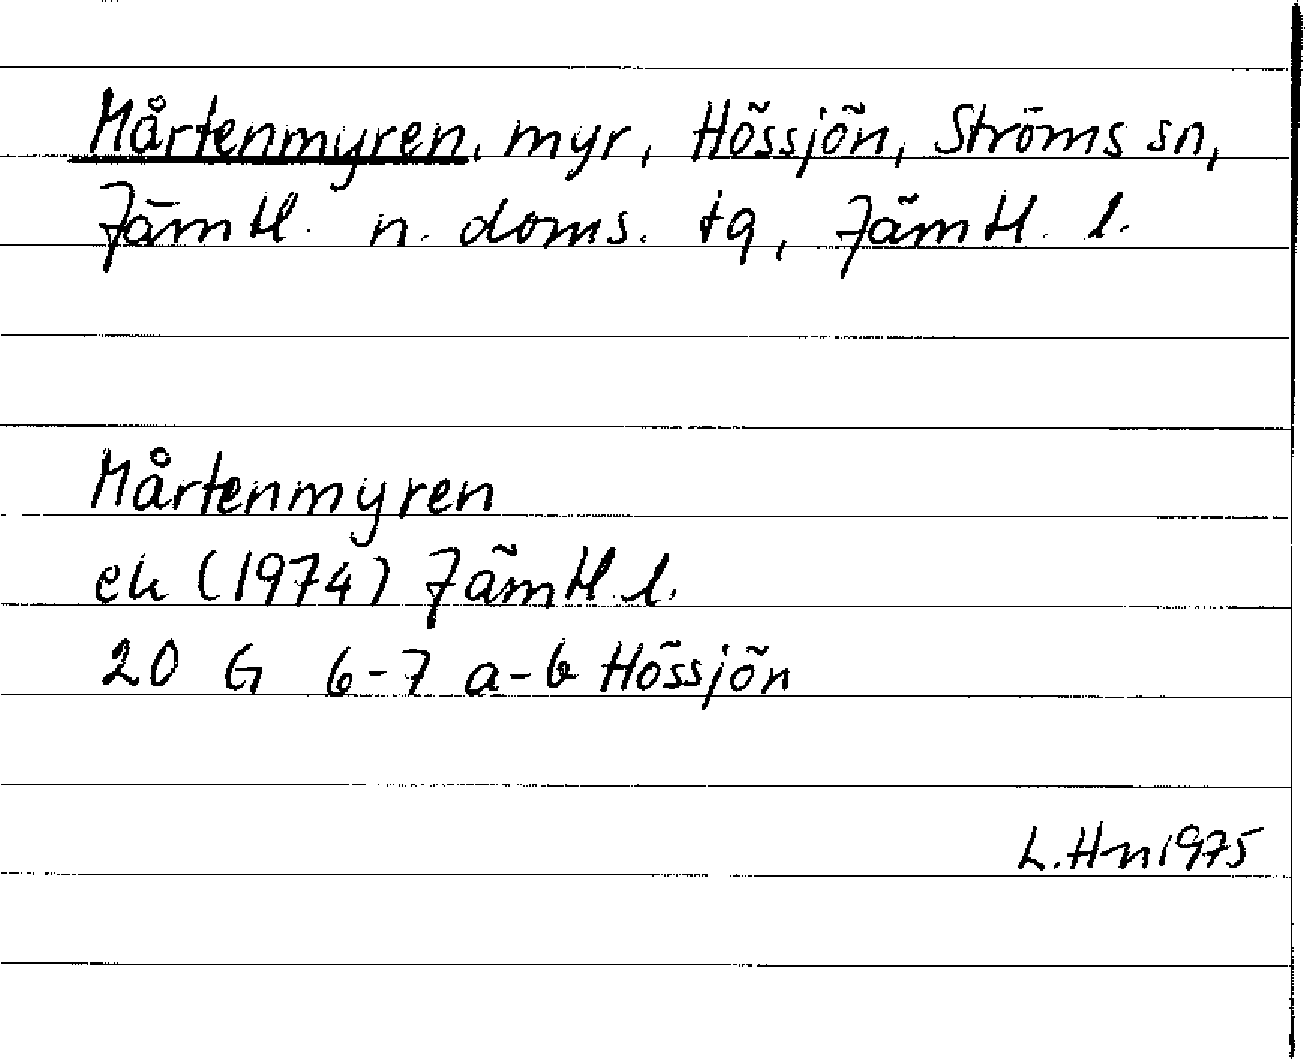 Mårtenmyren, myr, Hössjön, Ströms sn,
Jämtl. n. doms. tg, Jämtl. l.
Mårtenmyren
ek (1974) Jämtl. l.
20 G 6-7 a-b Hössjön
L. Hn 1975